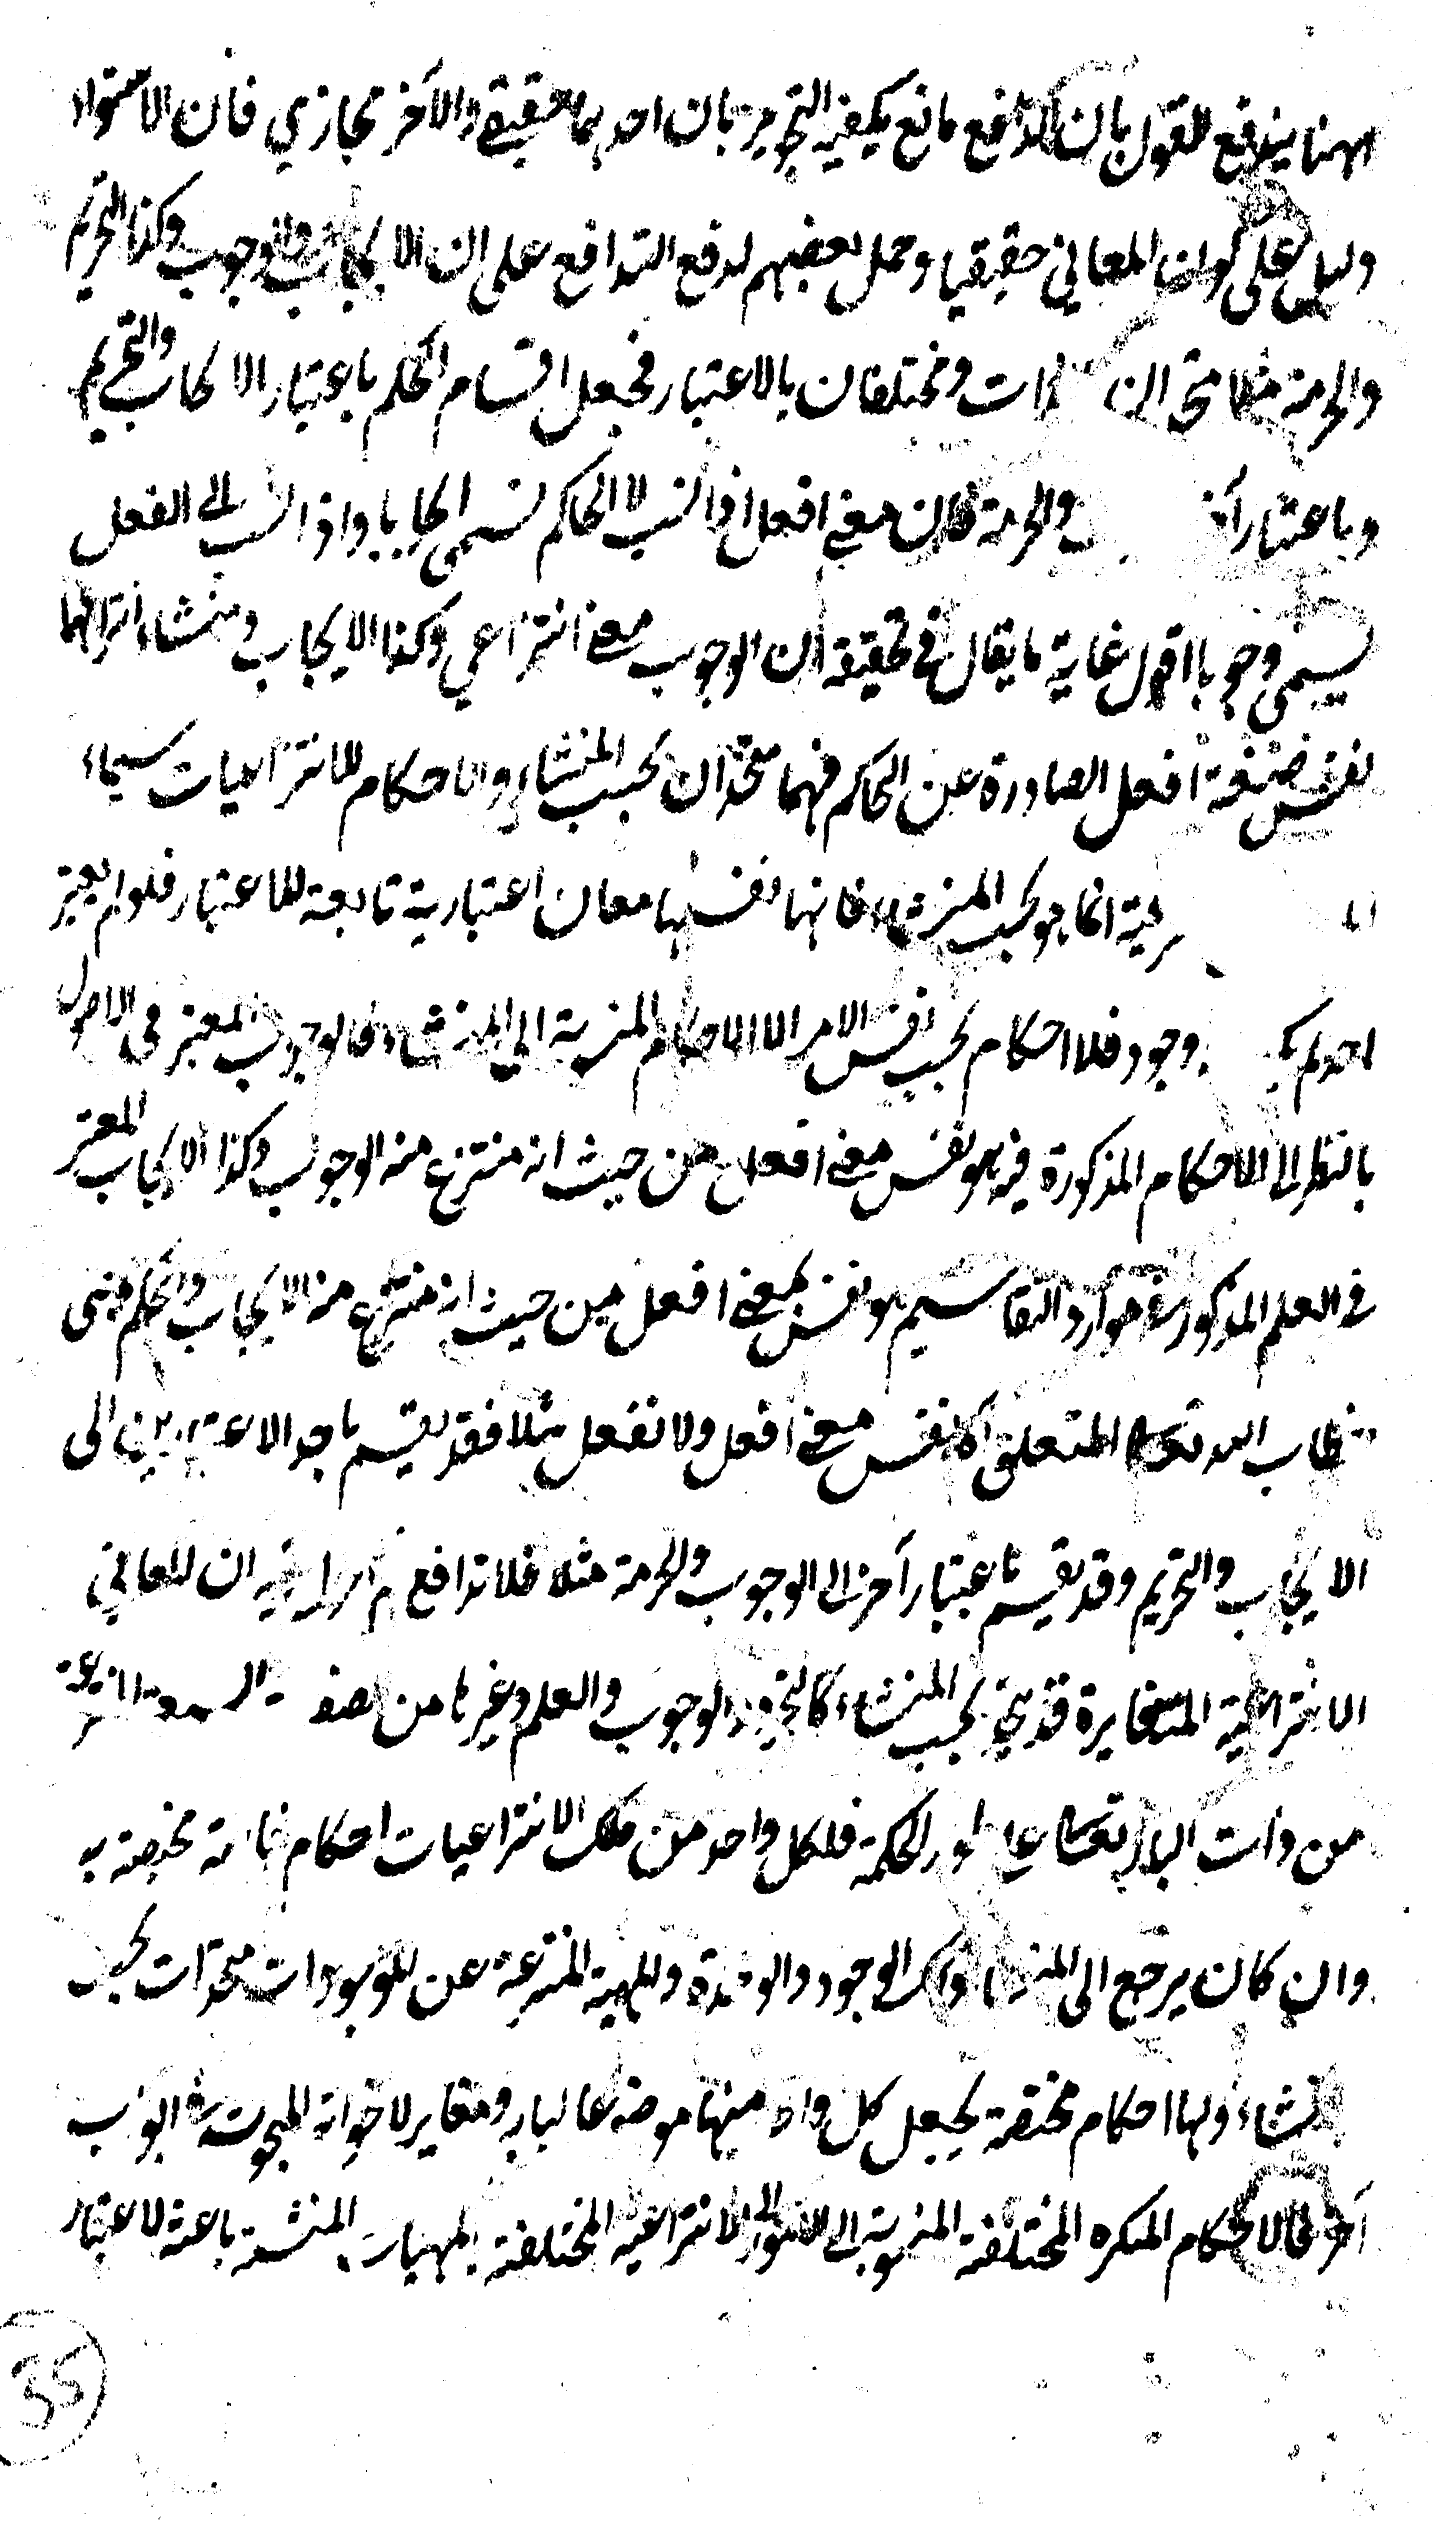 ههنا يندفع القول بان الدافع مانع يكفيه التجويز بان احدهما حقيقي والآخر مجازي فان الاستواء
دليل على كون المعاني حقيقيا وحمل بعضهم لدفع التدافع على ان الايجاب والوجوب وكذا التحريم
والحرمة متحدان بالذات ومختلفان بالاعتبار فجعل اقسام الحكم باعتبار الايجاب والتحريم
وباعتبار آخر والحرمة فان معنى افعل اذا نسب الى الحاكم تسمى ايجابا واذا نسب الى الفعل
يسمى وجوبا اقول غاية ما يقال في تحقيقه ان الوجوب معنى انتزاعي وكذا الايجاب ومنشاء انتزاعهما
نفس صيغة افعل الصادرة عن الحاكم فهما متحدان بحسب المنشاء والاحكام للانتزاعيات سيما
انما هو بحسب المنشاء فانها نفسها معان اعتبارية تابعة للاعتبار فلو لم يعتبر
احد لم يكن وجود فلا احكام بحسب نفس الامر الا الاحكام المنسوبة الى المنشاء فالوجوب المعتبر في الاصول
بالنظر الى الاحكام المذكورة فيه هو نفس معنى افعل من حيث انه منتزع منه الوجوب وكذا الايجاب المعتبر
في العلم المذكور في موارد التقاسيم هو نفس معنى افعل من حيث انه منتزع منه الايجاب والحكم معنى
خطاب الله تعالى المتعلق اه نفس معنى افعل ولا تفعل مثلا فقد يقسم باحد الاعتبارين الى
الايجاب والتحريم وقد يقسم باعتبار آخر الى الوجوب والحرمة مثلا فلا تدافع ان المعاني
الانتزاعية المتغايرة قد يتحد بحسب المنشاء والوجوب والعلم وغيرها من
من ذات الباري تعالى على الحكمة فلكل واحد من تلك الانتزاعيات احكام خاصة مختصة به
وان كان يرجع الى المنشاء وكذا الوجود والوحدة والمهية المنتزعة عن الموجودات متحدات بحسب
المنشاء ولها احكام مختصة يجعل كل واحد منها موضوعا لباب ومغاير لاخواته المبحوث في ابواب
آخر فالاحكام المختلفة المنسوبة الى الامور الانتزاعية المختلفة باعتة لاعتبار
35